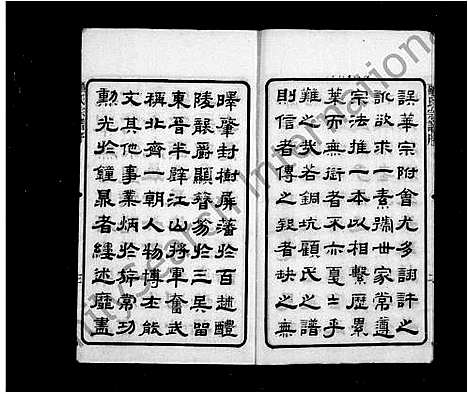 誤華宗附會尤多許之
訛欲求一素世家常遵
宗法推一本以相繫歷累
葉而無者不亦戛〻乎
難之哉若銅坑顧氏之譜
則信者傳之疑者缺之無
曄肇封樹屏藩於百越醴
陵襲爵顯簪笏於三吳留
東晉半壁江山將軍奮武
稱北齊一朝人物博士能
文其他事業炳於旂常功
勳光於鐘鼎者縷述靡盡
ilySearch International